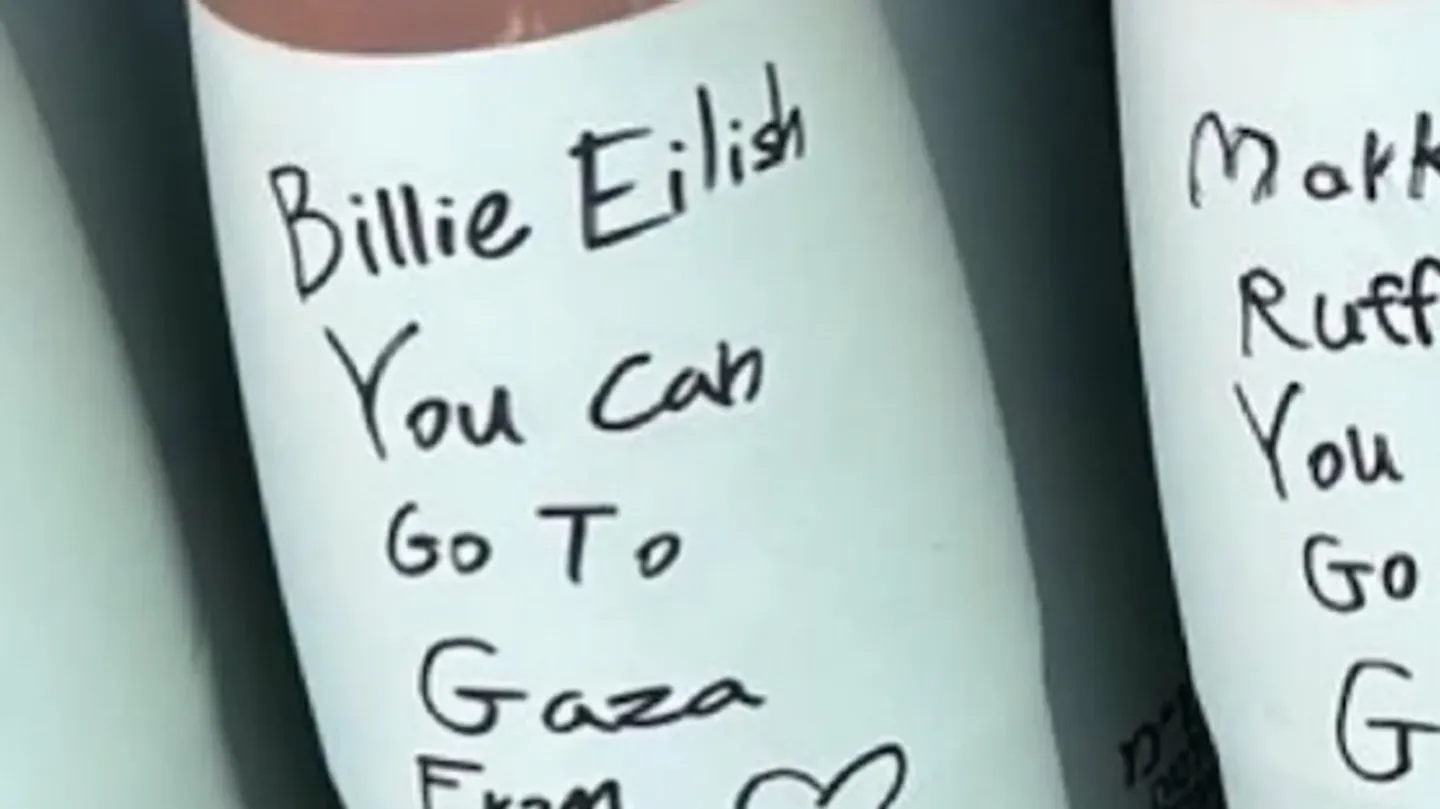 Billie Eilish
You Can
Go To
Gaza
From
Mark
Ruff
You
Go
G